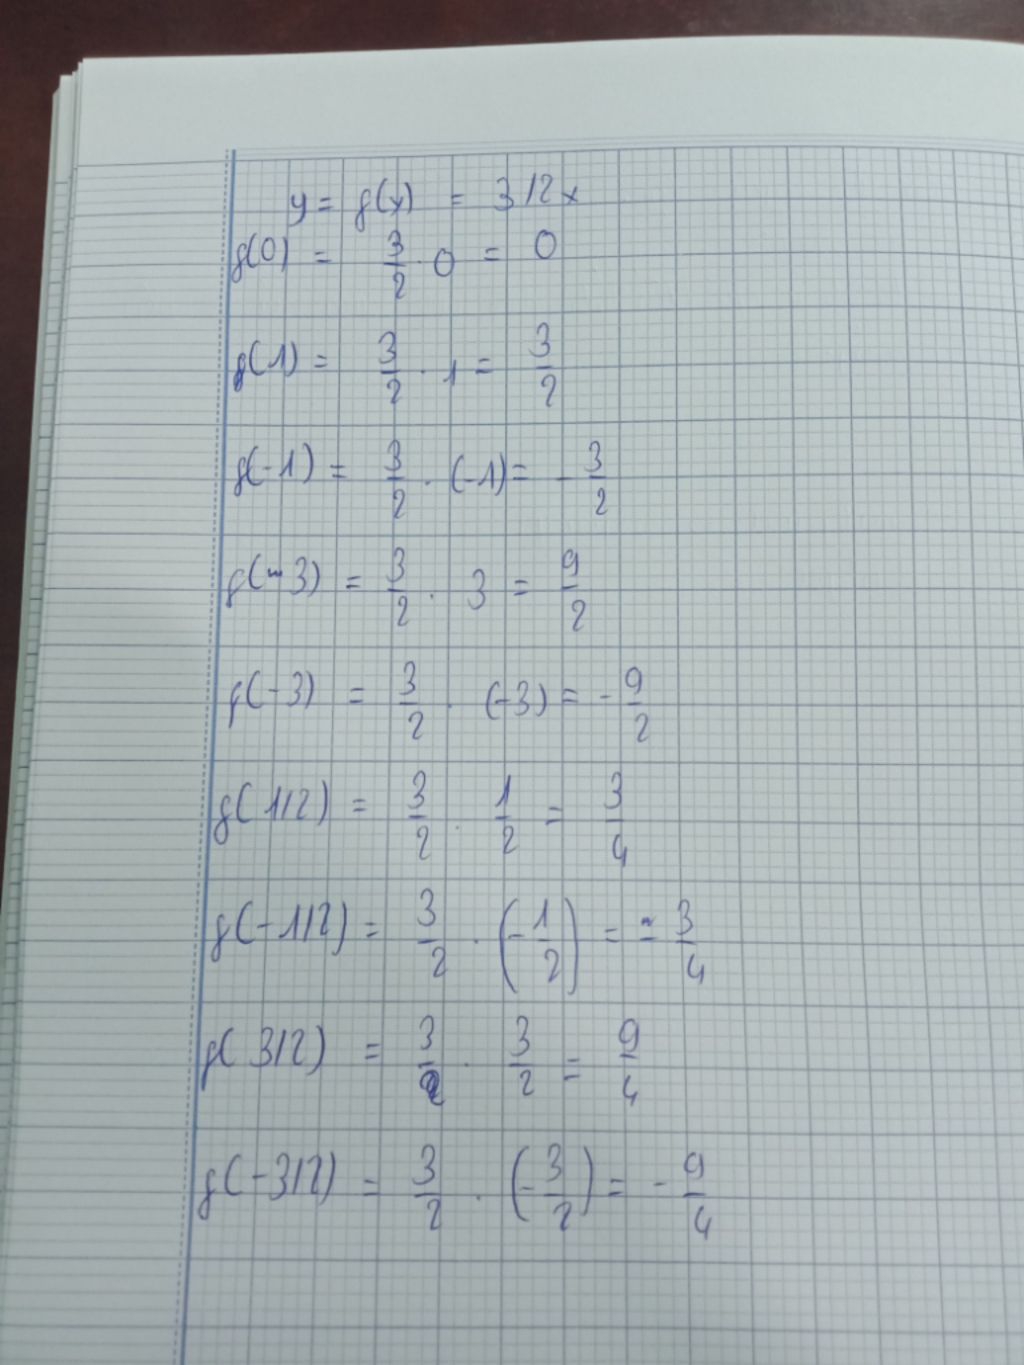 y = g(x) = 3/2x
g(0) = 3/2 · 0 = 0
g(1) = 3/2 · 1 = 3/2
g(-1) = 3/2 · (-1) = - 3/2
g(-3) = 3/2 · 3 = 9/2
g(-3) = 3/2 · (-3) = - 9/2
g(1/2) = 3/2 · 1/2 = 3/4
g(-1/2) = 3/2 · (-1/2) = - 3/4
g(3/2) = 3/2 · 3/2 = 9/4
g(-3/2) = 3/2 · (-3/2) = - 9/4